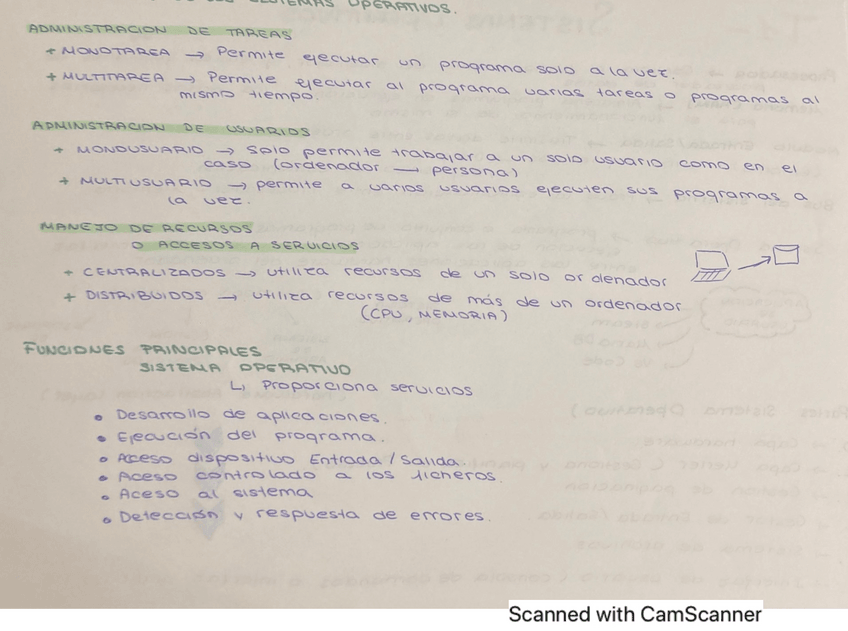 SISTEMAS OPERATIVOS.
ADMINISTRACION DE TAREAS
+ MONOTAREA → Permite ejecutar un programa solo a la vez.
+ MULTITAREA → Permite ejecutar al programa varias tareas o programas al
mismo tiempo.
ADMINISTRACION DE USUARIOS
+ MONOUSUARIO → Solo permite trabajar a un solo usuario como en el
caso (ordenador — persona)
+ MULTIUSUARIO → permite a varios usuarios ejecuten sus programas a
la vez.
MANEJO DE RECURSOS
O ACCESOS A SERVICIOS
+ CENTRALIZADOS → utiliza recursos de un solo ordenador
+ DISTRIBUIDOS → utiliza recursos de más de un ordenador
(CPU, MEMORIA)
FUNCIONES PRINCIPALES
SISTEMA OPERATIVO
↳ Proporciona servicios
• Desarrollo de aplicaciones.
• Ejecución del programa.
• Acceso dispositivo Entrada / Salida.
• Aceso controlado a los ficheros.
• Aceso al sistema
• Detección y respuesta de errores.
Scanned with CamScanner